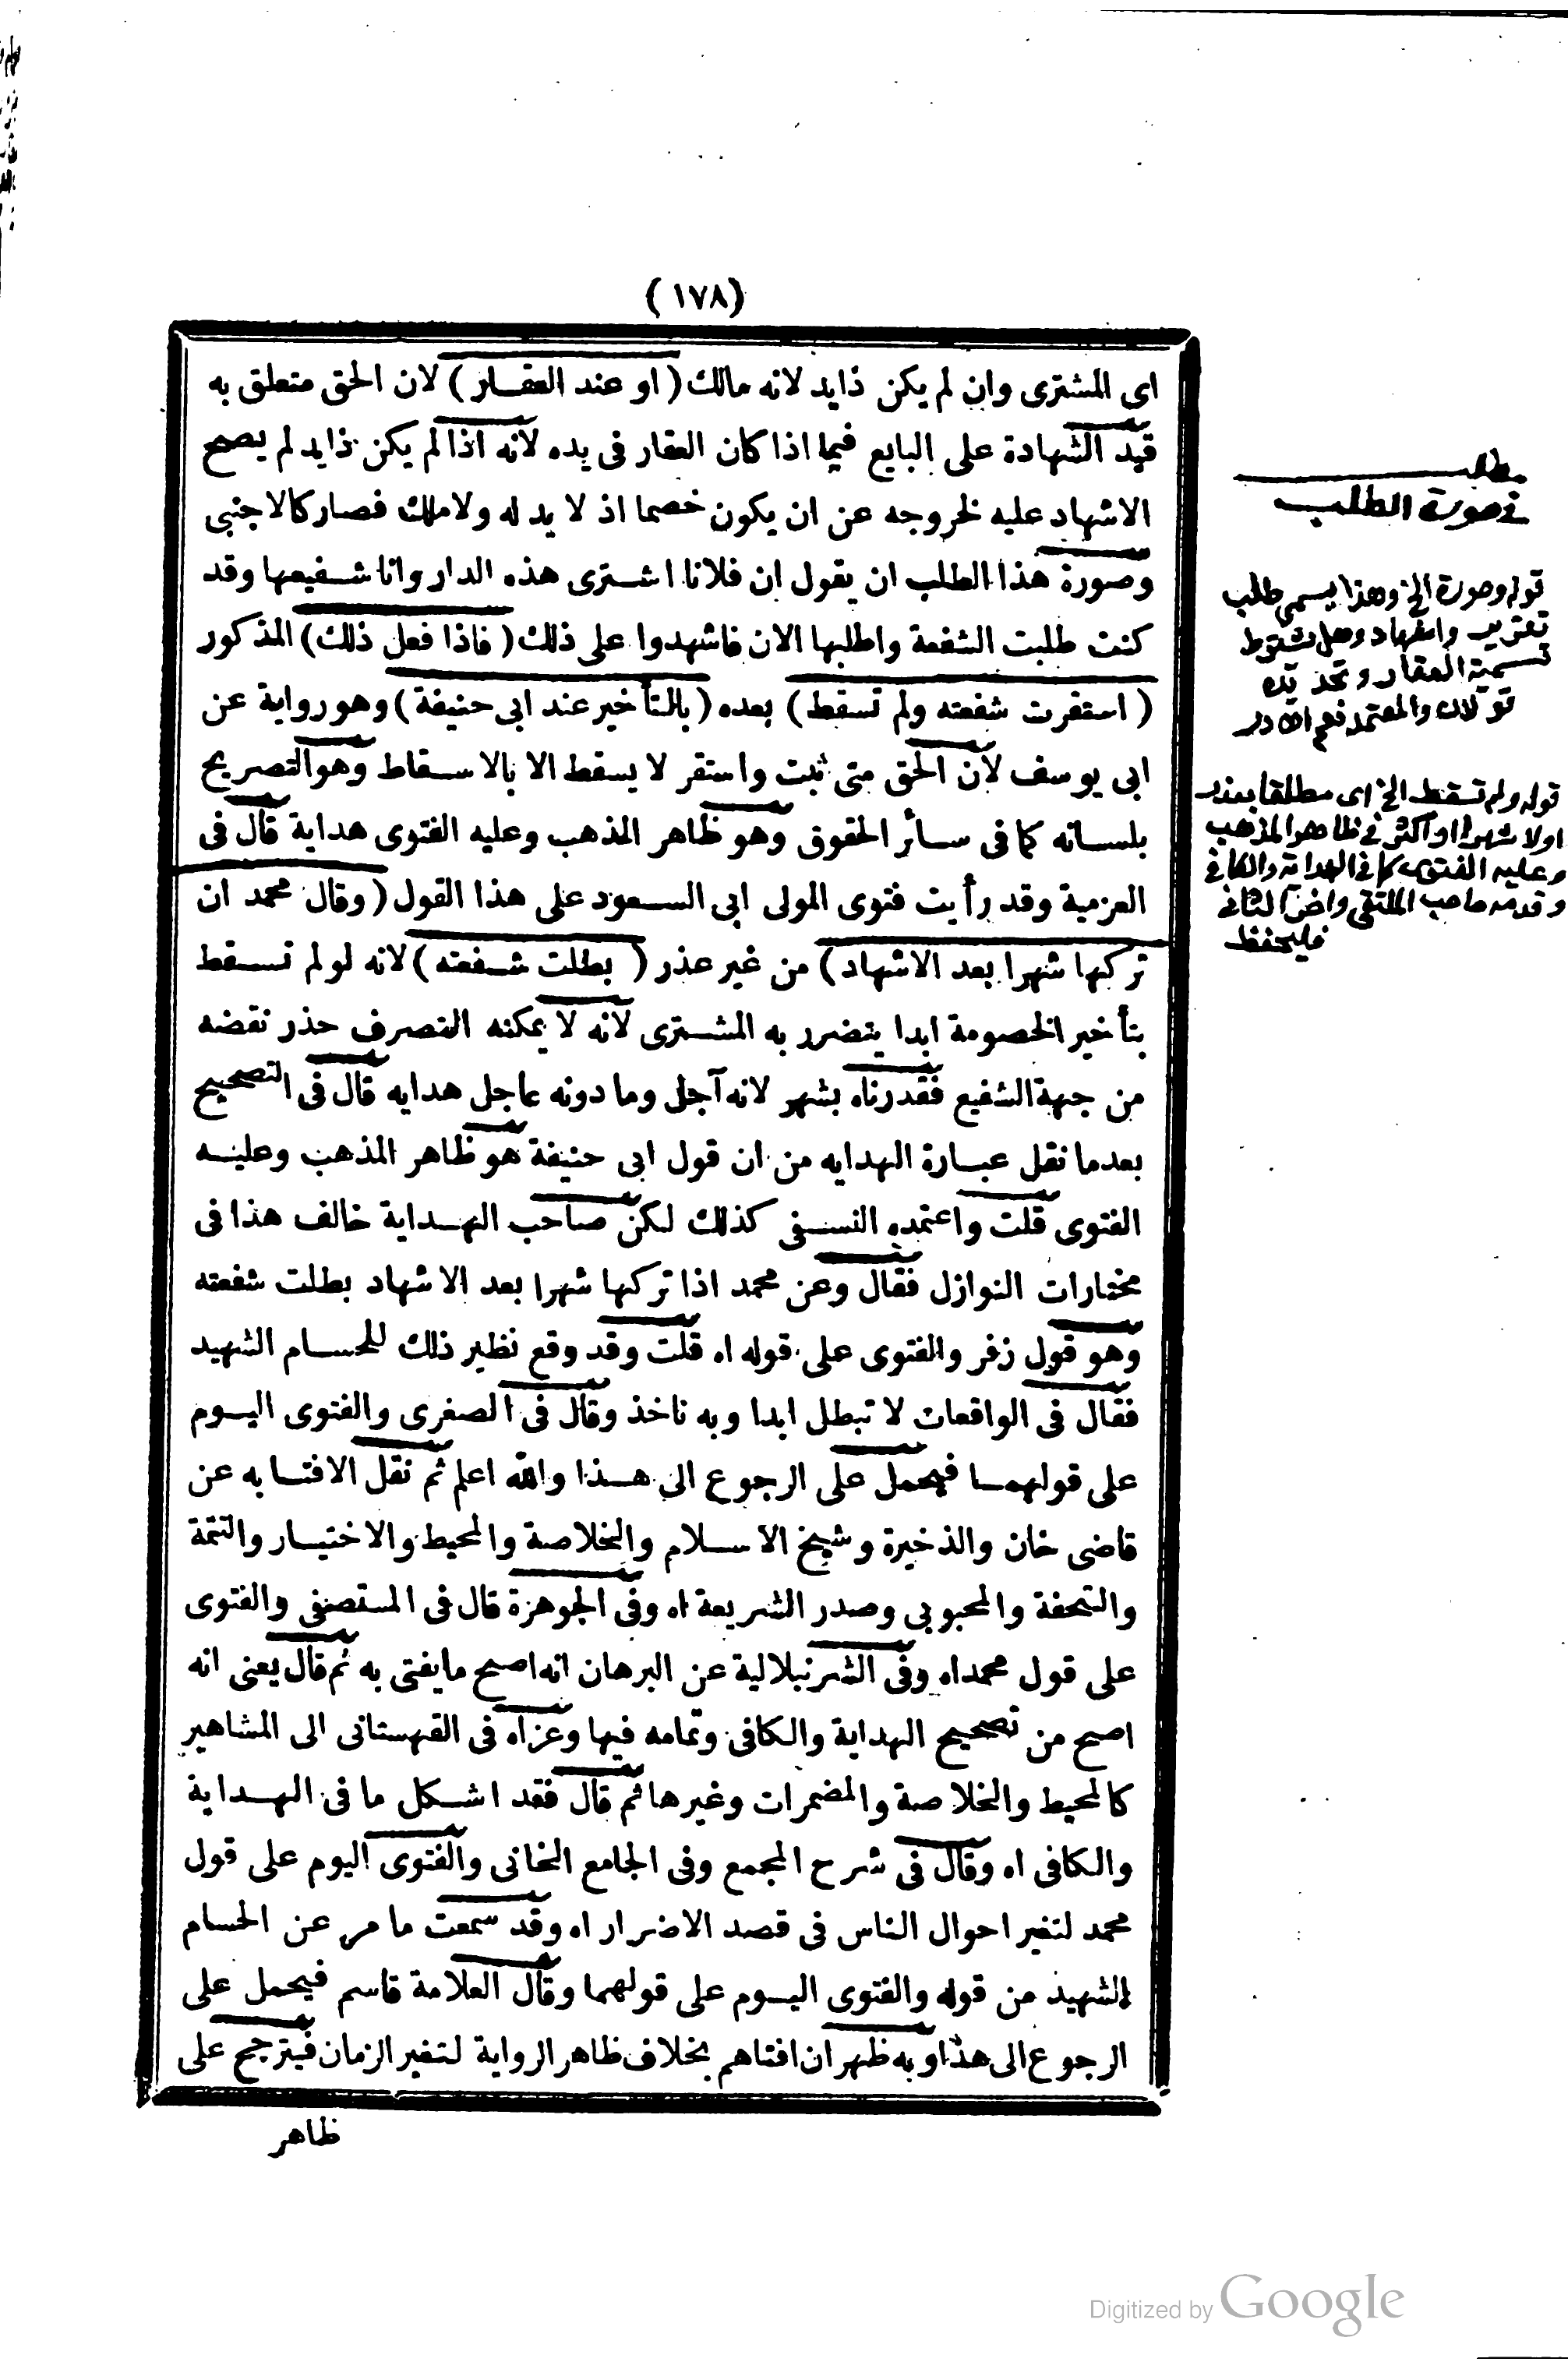 (١٧٨)
اى المشترى وان لم يكن ذايد لانه مالك (او عند العقار) لان الحق متعلق به
قيد الشهادة على البايع فيما اذا كان العقار فى يده لانه اذا لم يكن ذايد لم يصح
الاشهاد عليه لخروجه عن ان يكون خصما اذ لا يد له ولا ملك فصار كالاجنبى
وصورة هذا الطلب ان يقول ان فلانا اشترى هذه الدار وانا شفيعها وقد
كنت طلبت الشفعة واطلبها الان فاشهدوا على ذلك (فاذا فعل ذلك) المذكور
(استقرت شفعته ولم تسقط) بعده (بالتأخير عند ابى حنيفة) وهو رواية عن
ابى يوسف لان الحق متى ثبت واستقر لا يسقط الا بالاسقاط وهو التصريح
بلسانه كما فى سائر الحقوق وهو ظاهر المذهب وعليه الفتوى هداية قال فى
العزمية وقد رأيت فتوى المولى ابى السعود على هذا القول (وقال محمد ان
تركها شهرا بعد الاشهاد) من غير عذر (بطلت شفعته) لانه لو لم تسقط
بتأخير الخصومة ابدا يتضرر به المشترى لانه لا يمكنه التصرف حذر نقضه
من جهة الشفيع فقدرناه بشهر لانه آجل وما دونه عاجل هدايه قال فى التصحيح
بعدما نقل عبارة الهدايه من ان قول ابى حنيفة هو ظاهر المذهب وعليه
الفتوى قلت واعتمده النسفى كذلك لكن صاحب الهداية خالف هذا فى
مختارات النوازل فقال وعن محمد اذا تركها شهرا بعد الاشهاد بطلت شفعته
وهو قول زفر والفتوى على قوله اه قلت وقد وقع نظير ذلك للحسام الشهيد
فقال فى الواقعات لا تبطل ابدا وبه ناخذ وقال فى الصغرى والفتوى اليوم
على قولهما فيحمل على الرجوع الى هذا والله اعلم ثم نقل الافتا به عن
قاضى خان والذخيرة وشيخ الاسلام والخلاصة والمحيط والاختيار والتتمة
والتحفة والمحبوبى وصدر الشريعة اه وفى الجوهرة قال فى المستصفى والفتوى
على قول محمد اه وفى الشرنبلالية عن البرهان انه اصح ما يفتى به ثم قال يعنى انه
اصح من تصحيح الهداية والكافى وتمامه فيها وعزاه فى القهستانى الى المشاهير
كالمحيط والخلاصة والمضمرات وغيرها ثم قال فقد اشكل ما فى الهداية
والكافى اه وقال فى شرح المجمع وفى الجامع الخانى والفتوى اليوم على قول
محمد لتغير احوال الناس فى قصد الاضرار اه وقد سمعت ما مر عن الحسام
الشهيد من قوله والفتوى اليوم على قولهما وقال العلامة قاسم فيحمل على
الرجوع الى هذا وبه ظهر ان افتاهم بخلاف ظاهر الرواية لتغير الزمان فيترجح على
ظاهر
مطلب
فى صورة الطلب
قوله وصورة الخ وهذا يسمى طلب
تقرير واشهاد وهل تشترط
تسمية العقار وتحديده
قولان والمعتمد نعم
قوله ولم تسقط الخ اى مطلقا بعذر
اولا شهرا او اكثر فى ظاهر المذهب
وعليه الفتوى كما فى الهداية والكافى
وقدمه صاحب الملتقى واخر الثانى
فليحفظ
Digitized by Google